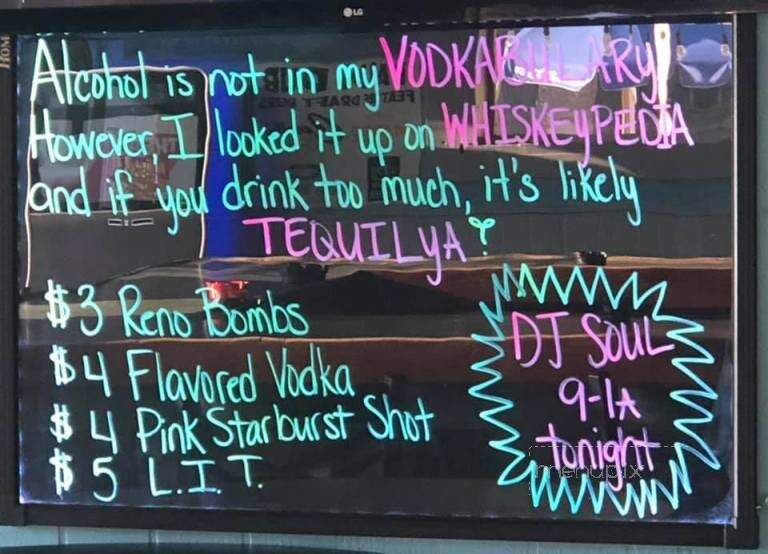 LG
Alcohol is not in my VODKABULARY
However, I looked it up on WHISKEYPEDIA
and if you drink too much, it's likely
TEQUILYA!
$3 Reno Bombs
$4 Flavored Vodka
$4 Pink Starburst Shot
$5 L.I.T.
DJ SOUL
9-1A
tonight
menupix